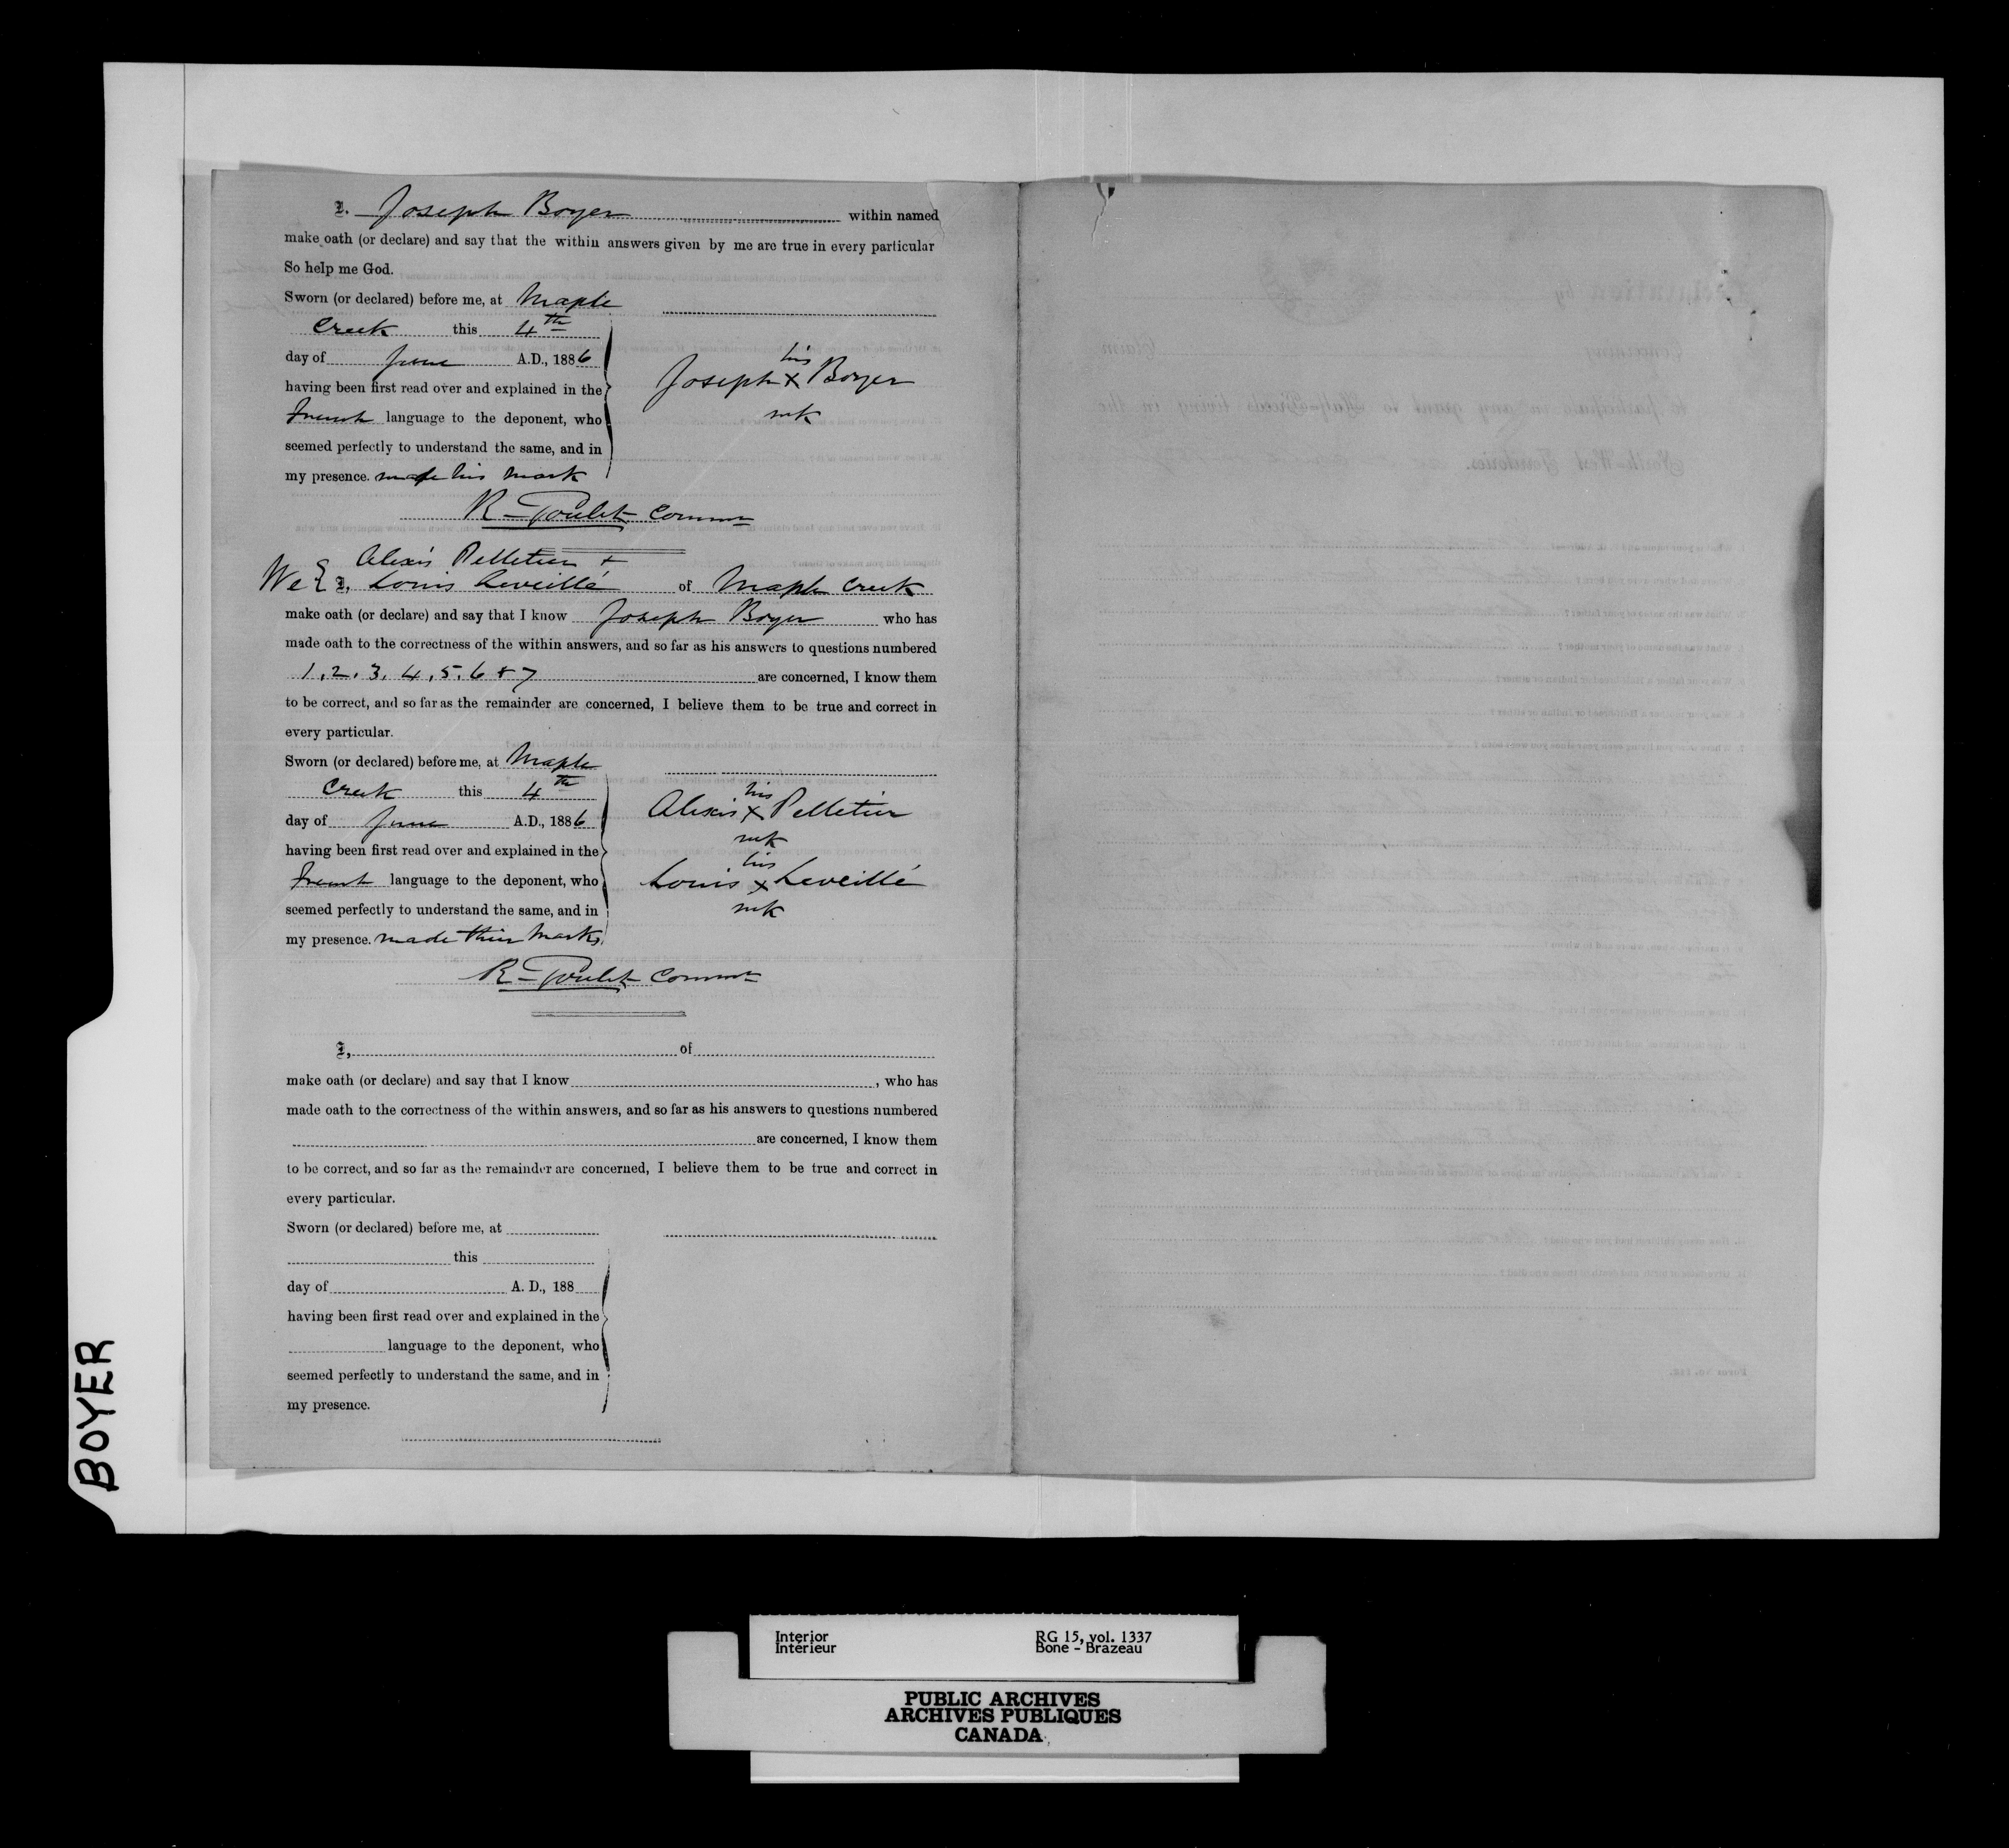 I, Joseph Boyer within named
make oath (or declare) and say that the within answers given by me are true in every particular
So help me God.
Sworn (or declared) before me, at Maple
Creek this 4th
day of June A.D., 1886
having been first read over and explained in the
French language to the deponent, who
seemed perfectly to understand the same, and in
my presence. made his mark
his
Joseph x Boyer
mk
R Goulet Commr
Alexis Pelletier +
We { I, Louis Leveillé of Maple Creek
make oath (or declare) and say that I know Joseph Boyer who has
made oath to the correctness of the within answers, and so far as his answers to questions numbered
1, 2, 3, 4, 5, 6 + 7 are concerned, I know them
to be correct, and so far as the remainder are concerned, I believe them to be true and correct in
every particular.
Sworn (or declared) before me, at Maple
Creek this 4th
day of June A.D., 1886
having been first read over and explained in the
French language to the deponent, who
seemed perfectly to understand the same, and in
my presence. made their marks
his
Alexis x Pelletier
mk
his
Louis x Leveillé
mk
R Goulet Commr
I, of
make oath (or declare) and say that I know , who has
made oath to the correctness of the within answers, and so far as his answers to questions numbered
are concerned, I know them
to be correct, and so far as the remainder are concerned, I believe them to be true and correct in
every particular.
Sworn (or declared) before me, at
this
day of A. D., 188
having been first read over and explained in the
language to the deponent, who
seemed perfectly to understand the same, and in
my presence.
BOYER
concerning Claim
to participate in any grant to Half-Breeds living in the
North-West Territories.
Interior
Intérieur
RG 15, vol. 1337
Bone - Brazeau
PUBLIC ARCHIVES
ARCHIVES PUBLIQUES
CANADA